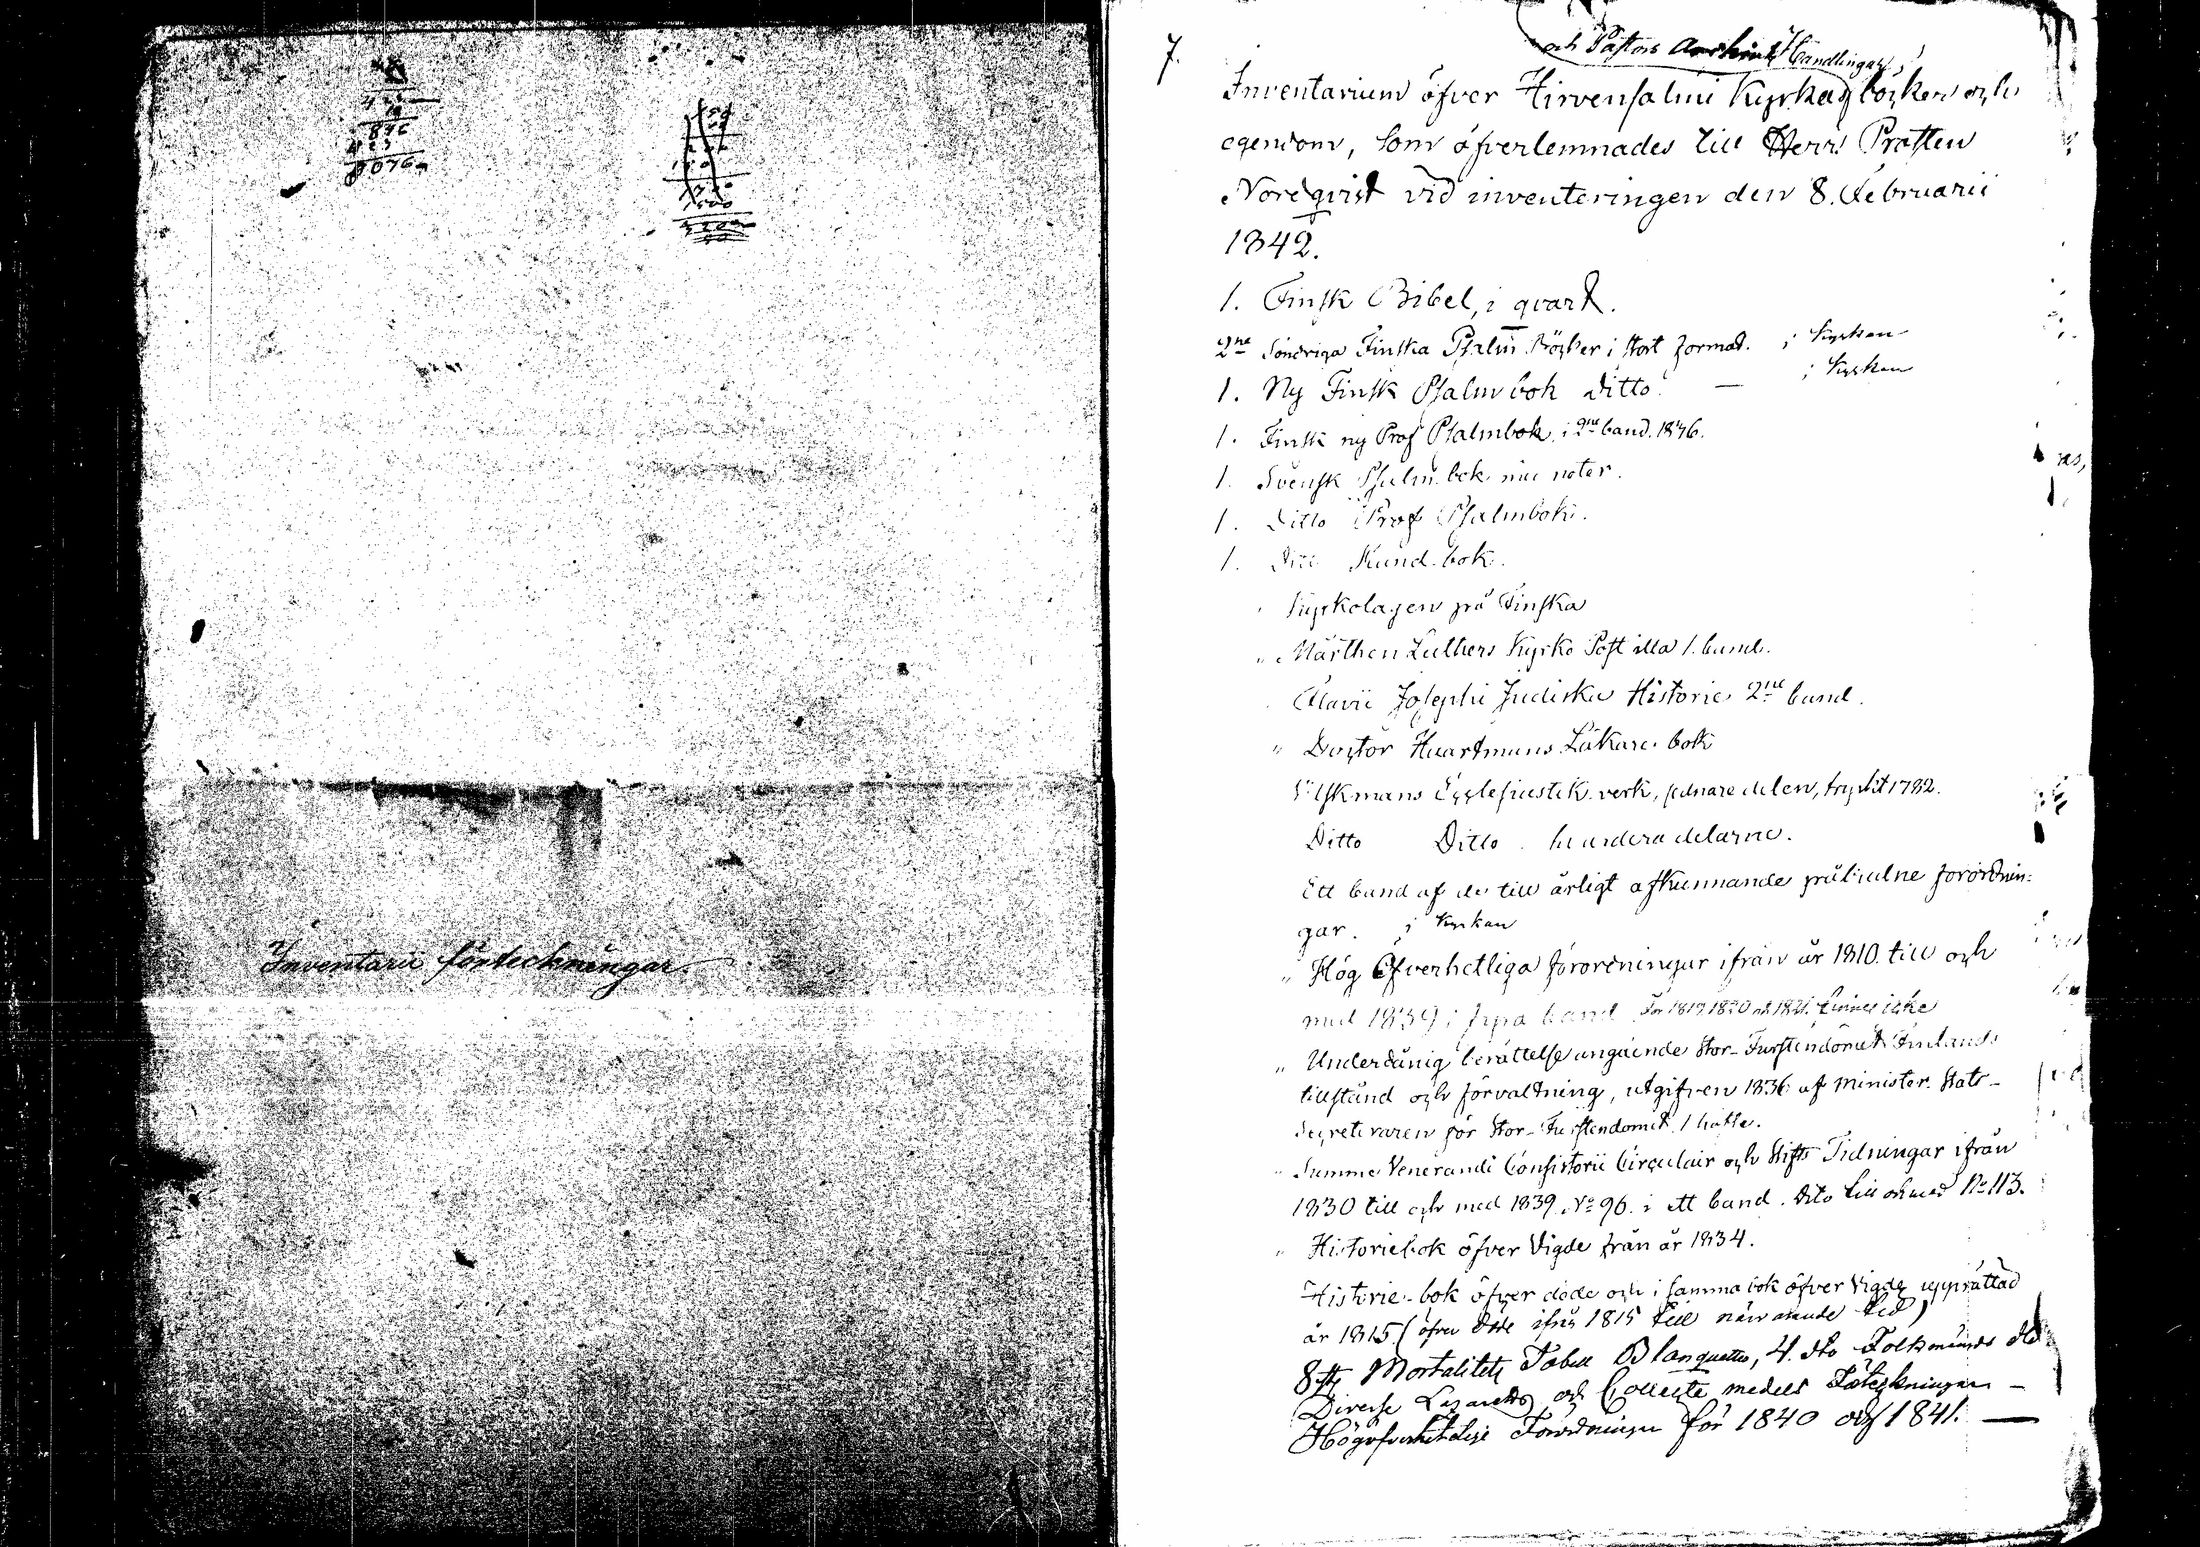 Inventarii förteckningar.
7.
och Pastors Archivs Handlingar,
Inventarium öfver Hirvensalmi Kyrkas böcker och
egendom, som öfverlemnades till Herr Prosten
Nordqvist vid inventeringen den 8. Februarii
1842.
1. Finsk Bibel, i qvart.
2ne Söndriga Finska Psalm Böcker i stort format. i Kyrkan
1. Ny Finsk Psalmbok Ditto. — i Kyrkan
1. Finsk ny Prof Psalmbok, i 2ne band. 1836.
1. Svensk Psalm bok med noter.
1. Ditto Prof Psalmbok.
1. Ditto Hand-bok.
Kyrkolagen på Finska
" Märthen Luthers Kyrko Postilla 1. band.
Flavii Josephi Judiska Historie 2ne band.
" Doctor Haartmans Läkare bok
Wilskmans Ecclesiastik verk, sednare delen, tryckt 1782.
Ditto Ditto. andera delarne.
Ett band af de till årligt afkunnande påbudne förordnin:
gar. i Kyrkan
" Hög Öfverhetliga förordningar ifrån år 1810. till och
med 1839 i band För 1819, 1820 och 1821. finnes icke
" Underdånig berättelse angående Stor-Furstendömet Finlands
tillstånd och förvaltning, utgifven 1836 af Minister Stats-
Secreteraren för Stor-Furstendömet. 1 häfte.
" Summe Venerandi Consistorii Circulair och Stifts Tidningar ifrån
1830 till och med 1839. No 96. i ett band. Dito till och med No 113.
" Historiebok öfver Vigde från år 1834.
Historie-bok öfver döde och i samma bok öfver Vigde upprättad
år 1815 (öfver döde ifrån 1815 till närvarande tid)
8 st. Mortalitets Tabell Blanquetter, 4. dto Folkmängds dto
Diverse Lazaretts och Collecte medels Förteckningar —
Högöfverhetlige Förordningar för 1840 och 1841. —